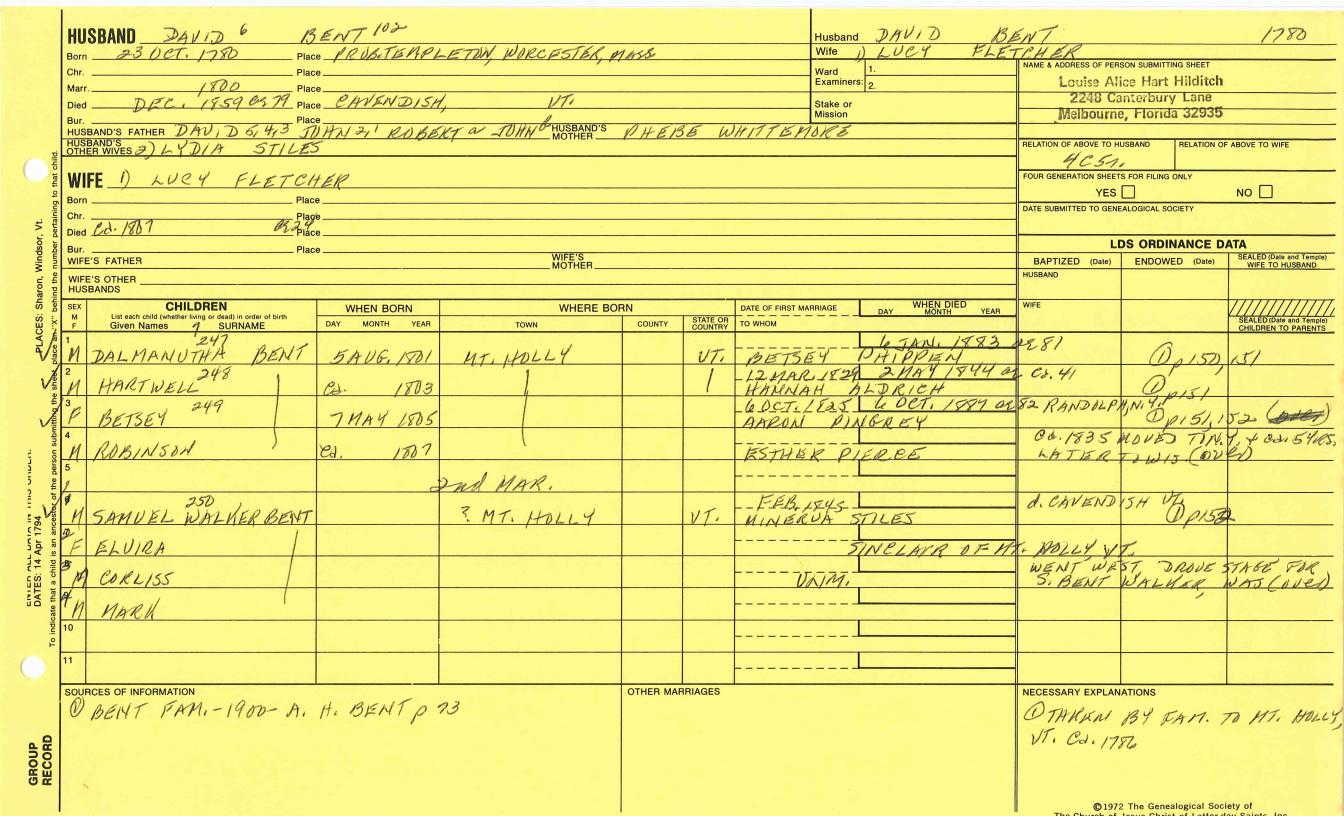 HUSBAND DAVID 6 BENT 102
Born 23 OCT. 1780 Place PROB. TEMPLETON, WORCESTER, MASS
Chr. Place
Marr. 1800 Place
Died DEC. 1859 ag 79 Place CAVENDISH, VT.
Bur. Place
HUSBAND'S FATHER DAVID 5,4,3 JOHN 2,1 ROBERT or JOHN HUSBAND'S MOTHER PHEBE WHITTEMORE
HUSBAND'S OTHER WIVES 2) LYDIA STILES
WIFE 1) LUCY FLETCHER
Born Place
Chr. Place
Died Ca. 1807 Place
Bur. Place
WIFE'S FATHER WIFE'S MOTHER
WIFE'S OTHER HUSBANDS
Husband DAVID BENT 1780
Wife 1) LUCY FLETCHER
Ward Examiners: 1. 2.
Stake or Mission
NAME & ADDRESS OF PERSON SUBMITTING SHEET
Louise Alice Hart Hilditch
2248 Canterbury Lane
Melbourne, Florida 32935
RELATION OF ABOVE TO HUSBAND RELATION OF ABOVE TO WIFE
FOUR GENERATION SHEETS FOR FILING ONLY
YES NO
DATE SUBMITTED TO GENEALOGICAL SOCIETY
LDS ORDINANCE DATA
BAPTIZED (Date) ENDOWED (Date) SEALED (Date and Temple) WIFE TO HUSBAND
HUSBAND
WIFE
SEALED (Date and Temple) CHILDREN TO PARENTS
SEX M F
CHILDREN
List each child (whether living or dead) in order of birth
Given Names 7 SURNAME
WHEN BORN
DAY MONTH YEAR
WHERE BORN
TOWN COUNTY STATE OR COUNTRY
DATE OF FIRST MARRIAGE
TO WHOM
WHEN DIED
DAY MONTH YEAR
1 247 6 JAN. 1883 ag 81
M DALMANUTHA BENT 5 AUG. 1801 MT. HOLLY VT. BETSEY PHIPPEN ① p150, 151
2 248 12 MAR. 1829 2 MAY 1844 ag Ca. 41
M HARTWELL Ca. 1803 HANNAH ALDRICH ① p151
3 249 6 OCT. 1825 6 OCT. 1887 ag 82 RANDOLPH, N.Y.
F BETSEY 7 MAY 1805 AARON PINGREY ① p151, 152
4 Ca. 1835 MOVED TO N.Y. & Ca. 5 YRS.
M ROBINSON Ca. 1807 ESTHER PIERCE LATER TO WIS (OVER)
5
2nd MAR.
1 250 FEB. 1845 d. CAVENDISH VT.
M SAMUEL WALKER BENT ? MT. HOLLY VT. MINERVA STILES ① p152
2
F ELVIRA SINCLAIR OF MT. HOLLY, VT.
3 WENT WEST, DROVE STAGE FOR
M CORLISS UNM. S. BENT WALKER, WAS (OVER)
4
M MARK
10
11
SOURCES OF INFORMATION
① BENT FAM. - 1900 - A. H. BENT p 73
OTHER MARRIAGES
NECESSARY EXPLANATIONS
① TAKEN BY FAM. TO MT. HOLLY,
VT. Ca. 1786
©1972 The Genealogical Society of
The Church of Jesus Christ of Latter-day Saints, Inc.
PLACES: Sharon, Windsor, Vt.
ENTER ALL DATA IN THIS ORDER:
DATES: 14 Apr 1794
To indicate that a child is an ancestor of the person submitting the sheet, place an "X" behind the number pertaining to that child.
GROUP RECORD